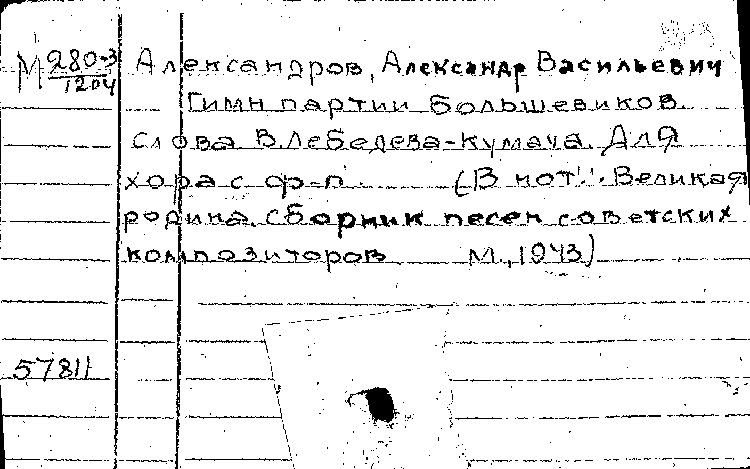 М 280-3 Александров, Александр Васильевич
1204
Гимн партии большевиков.
Слова В.Лебедева-Кумача. Для
хора с ф-п. (В нот: Великая
родина. Сборник песен советских
композиторов М., 1943)
57811